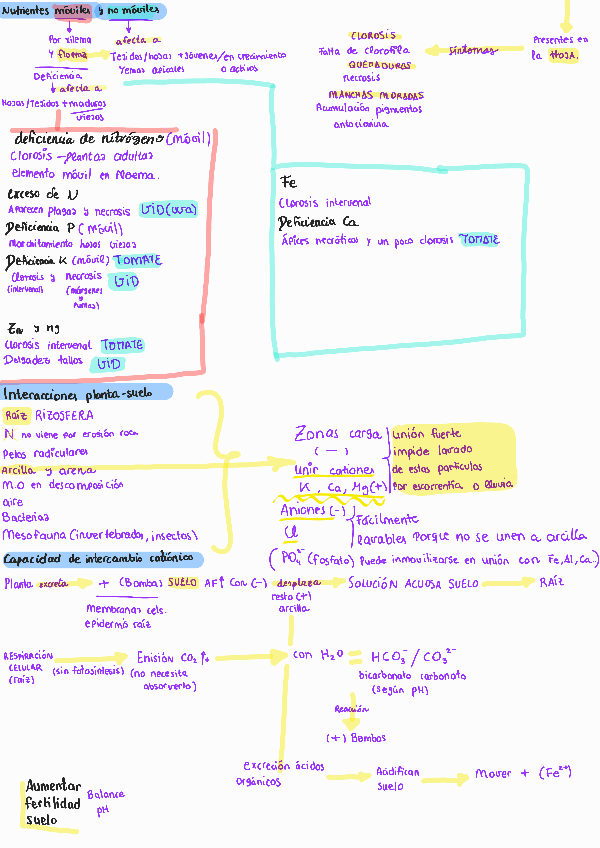 Nutrientes móviles y no móviles
Por xilema
y floema
afecta a
Tejidos/hojas +jóvenes/en crecimiento
Yemas apicales o activos
Deficiencia
afecta a
Hojas/Tejidos +maduros
viejos
CLOROSIS
Falta de clorofila
QUEMADURAS
necrosis
MANCHAS MORADAS
Acumulación pigmentos
antocianina
Síntomas
Presentes en
la HOJA.
deficiencia de nitrógeno (móvil)
Clorosis - plantas adultas
elemento móvil en floema.
exceso de N
Aparecen plagas y necrosis VID (uva)
Deficiencia P (móvil)
Marchitamiento hojas viejas
Deficiencia K (móvil) TOMATE
Clorosis y necrosis VID
(intervenal) (márgenes
y
puntas)
Zn y Mg
Clorosis intervenal TOMATE
Delgadez tallos VID
Fe
Clorosis intervenal
Deficiencia Ca
Ápices necróticos y un poco clorosis TOMATE
Interacciones planta-suelo
Raíz RIZOSFERA
N no viene por erosión roca
Pelos radiculares
Arcilla y arena
M.O en descomposición
aire
Bacterias
Mesofauna (invertebrados, insectos)
Zonas carga
(-)
unir cationes
K, Ca, Mg(+)
unión fuerte
impide lavado
de estas partículas
por escorrentía o lluvia
Aniones (-)
Cl
Fácilmente
lavables porque no se unen a arcilla
(PO₄³⁻ (fosfato) Puede inmovilizarse en unión con Fe, Al, Ca..)
Capacidad de intercambio catiónico
Planta excreta + (Bombas SUELO AF↑ Con (-) desplaza SOLUCIÓN ACUOSA SUELO RAÍZ
resto (+)
arcilla
Membranas cels.
epidermo raíz
RESPIRACIÓN
CELULAR
(raíz)
(sin fotosíntesis)
Emisión CO₂↑
(no necesita
absorverlo)
con H₂O = HCO₃⁻ / CO₃²⁻
bicarbonato carbonato
(según pH)
Reacción
(+) Bombas
excreción ácidos
orgánicos
Acidifican
suelo
Mover + (Fe²⁺)
Aumentar
fertilidad
suelo
Balance
pH